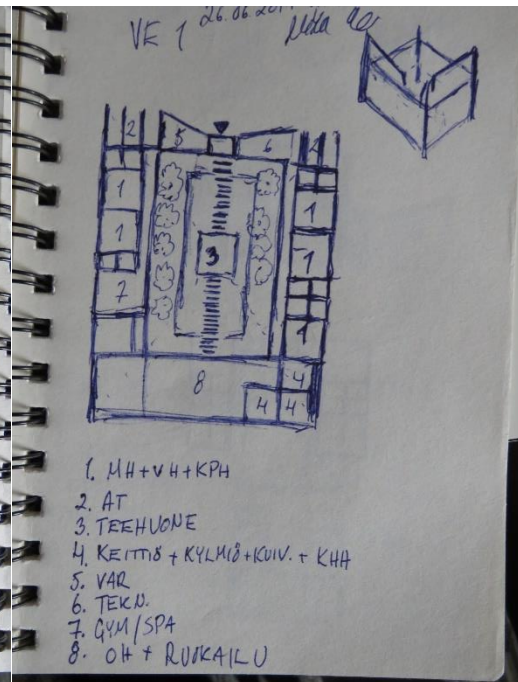 VE 1
2 5 6
1 1
1 1
3
7
1
8 4
4 4
1. MH+VH+KPH
2. AT
3. TEEHUONE
4. KEITTIÖ + KYLMIÖ+KUIV. + KHH
5. VAR
6. TEKN.
7. GYM/SPA
8. OH + RUOKAILU